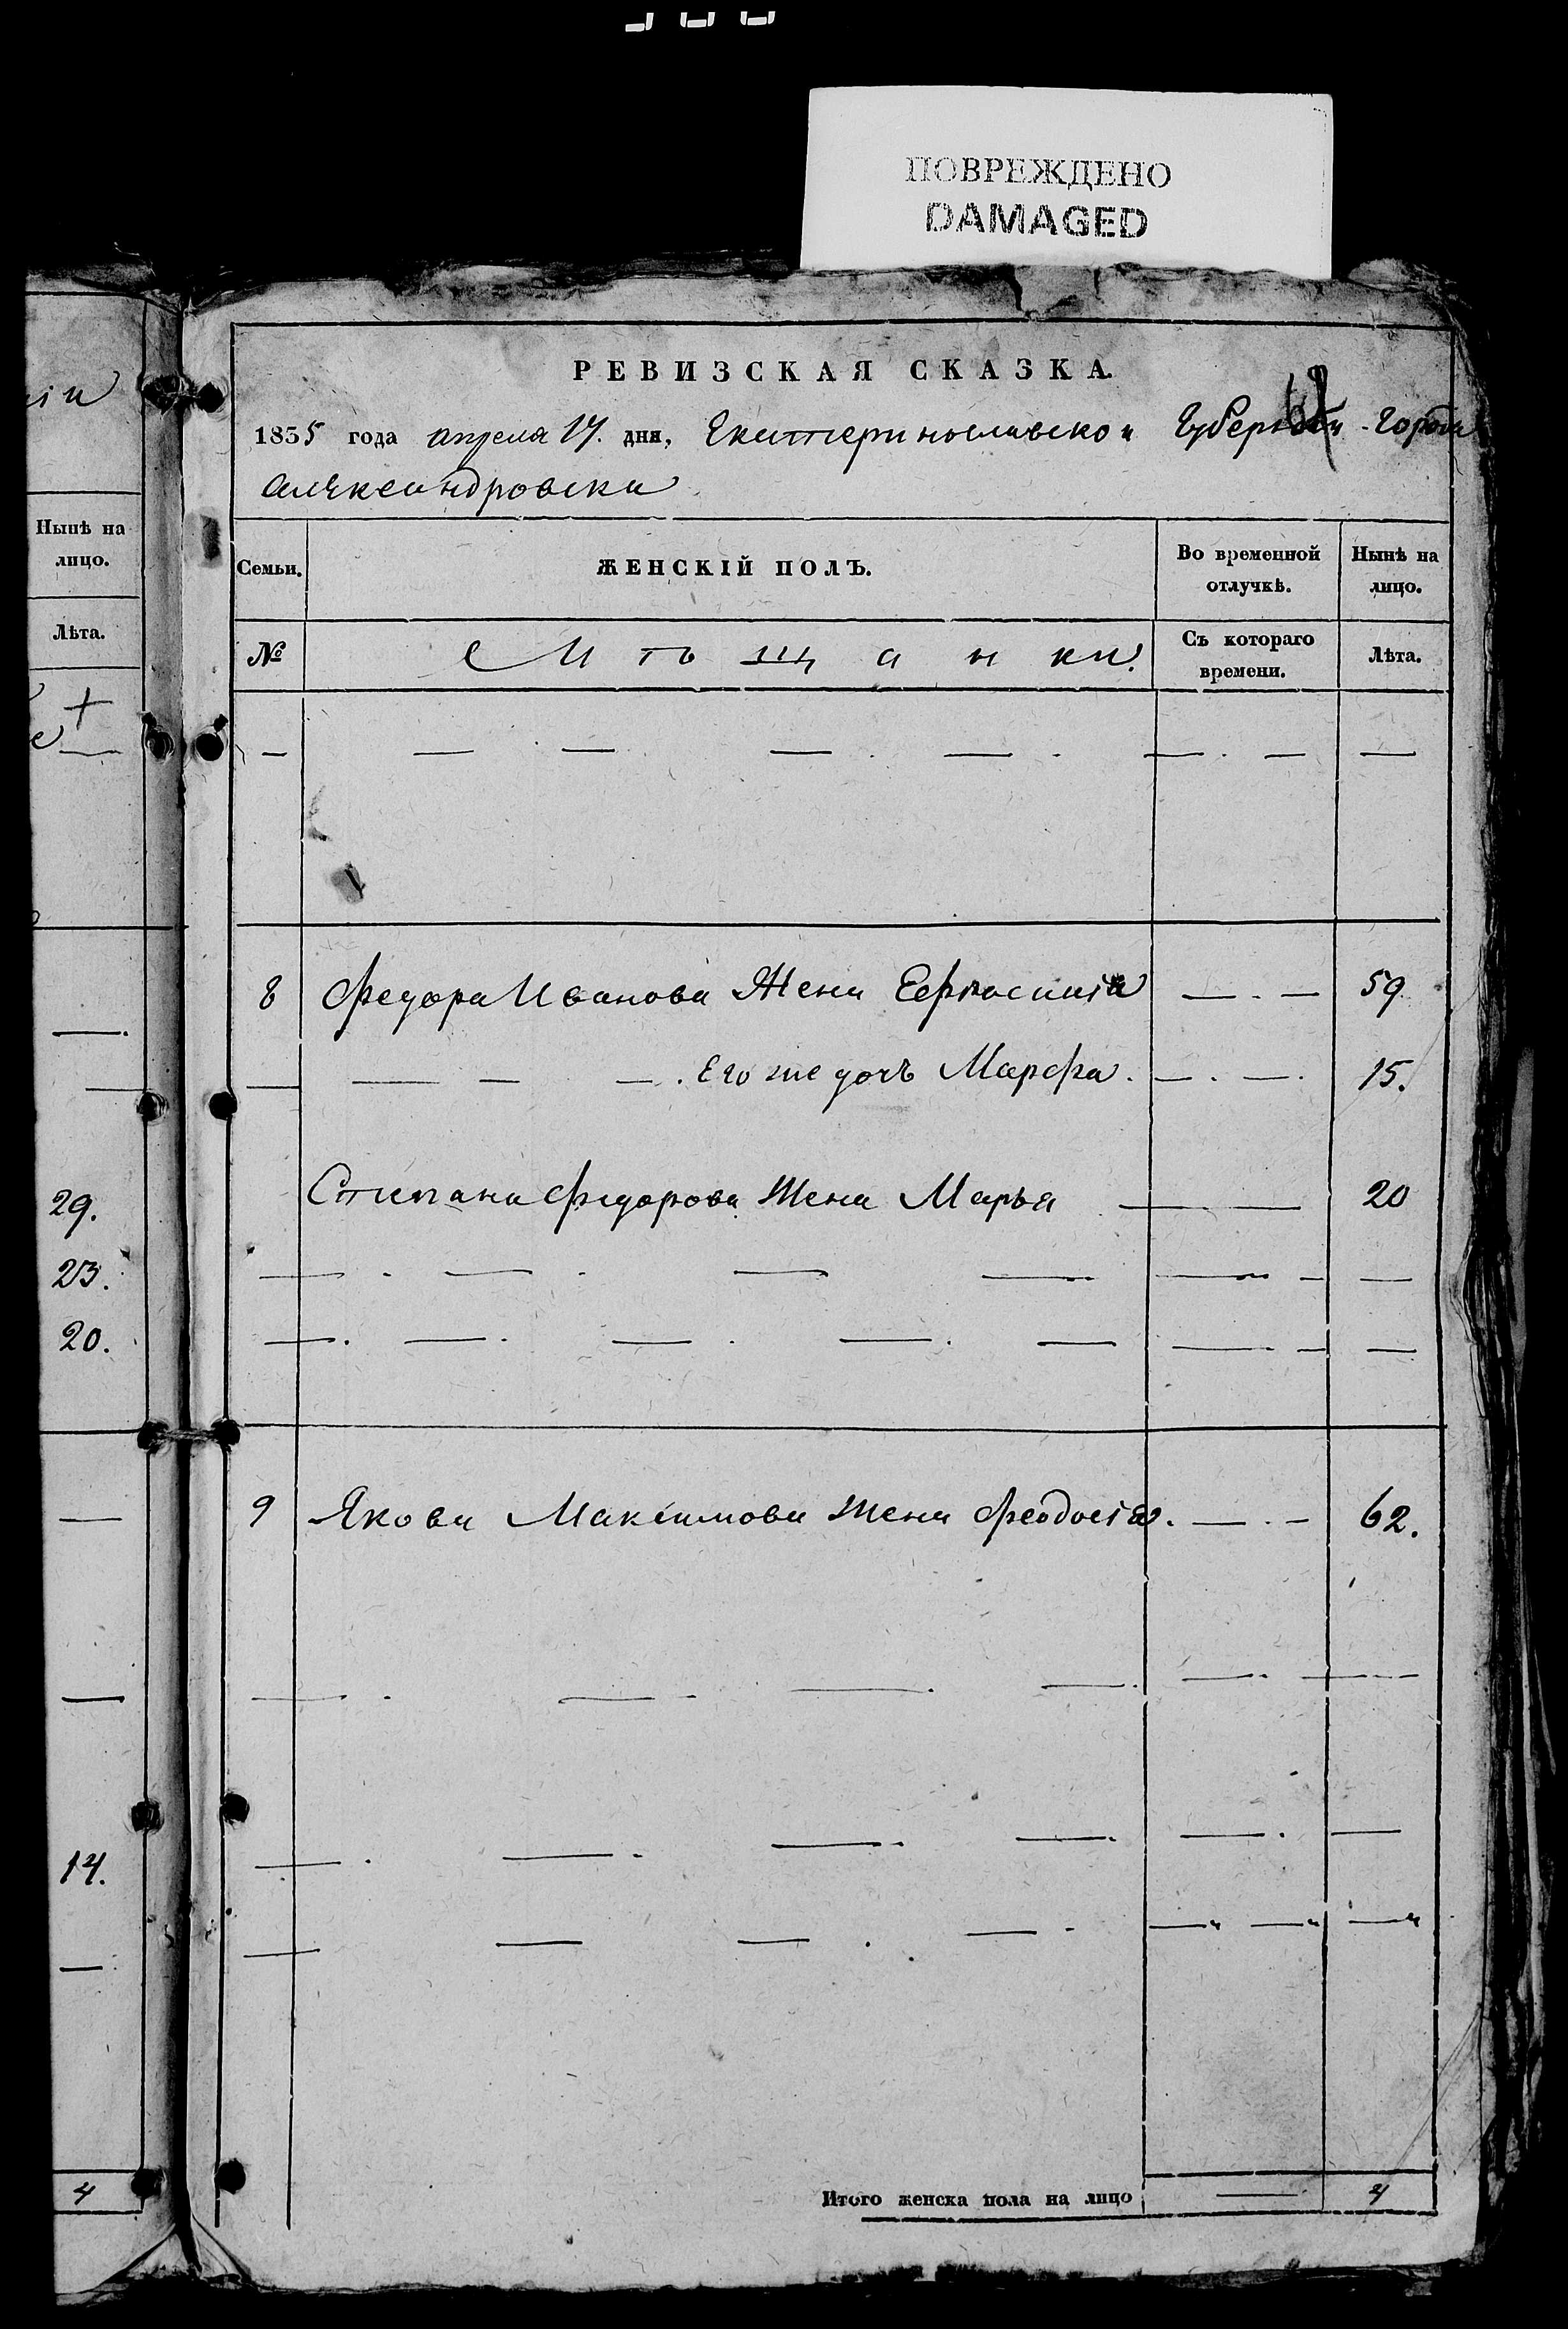 ПОВРЕЖДЕНО
DAMAGED
РЕВИЗСКАЯ СКАЗКА.
1835 года апреля 17. дня, Екатеринославской Губернии - Города
Александровска
Ныне на
лицо.
Лѣта.
+
29.
23.
20.
14.
4
Семьи. ЖЕНСКІЙ ПОЛЪ. Во временной отлучкѣ. Нынѣ на лицо.
№ Мѣщанки. Съ котораго времени. Лѣта.
— — — — — — — —
8 Федора Иванова Жена Ефросинія — . — 59
— — — — . Его же дочь Марфа. — . — . 15.
Степана Федорова Жена Марья — — 20
— . — . — — — — —
— . — . — . — . — — — —
9 Якова Максимова Жена Феодосія. — . — 62.
— . — — . — . — . — —
— . — . — . — . — . —
— — — . — - — — —
Итого женска пола на лицо — 4